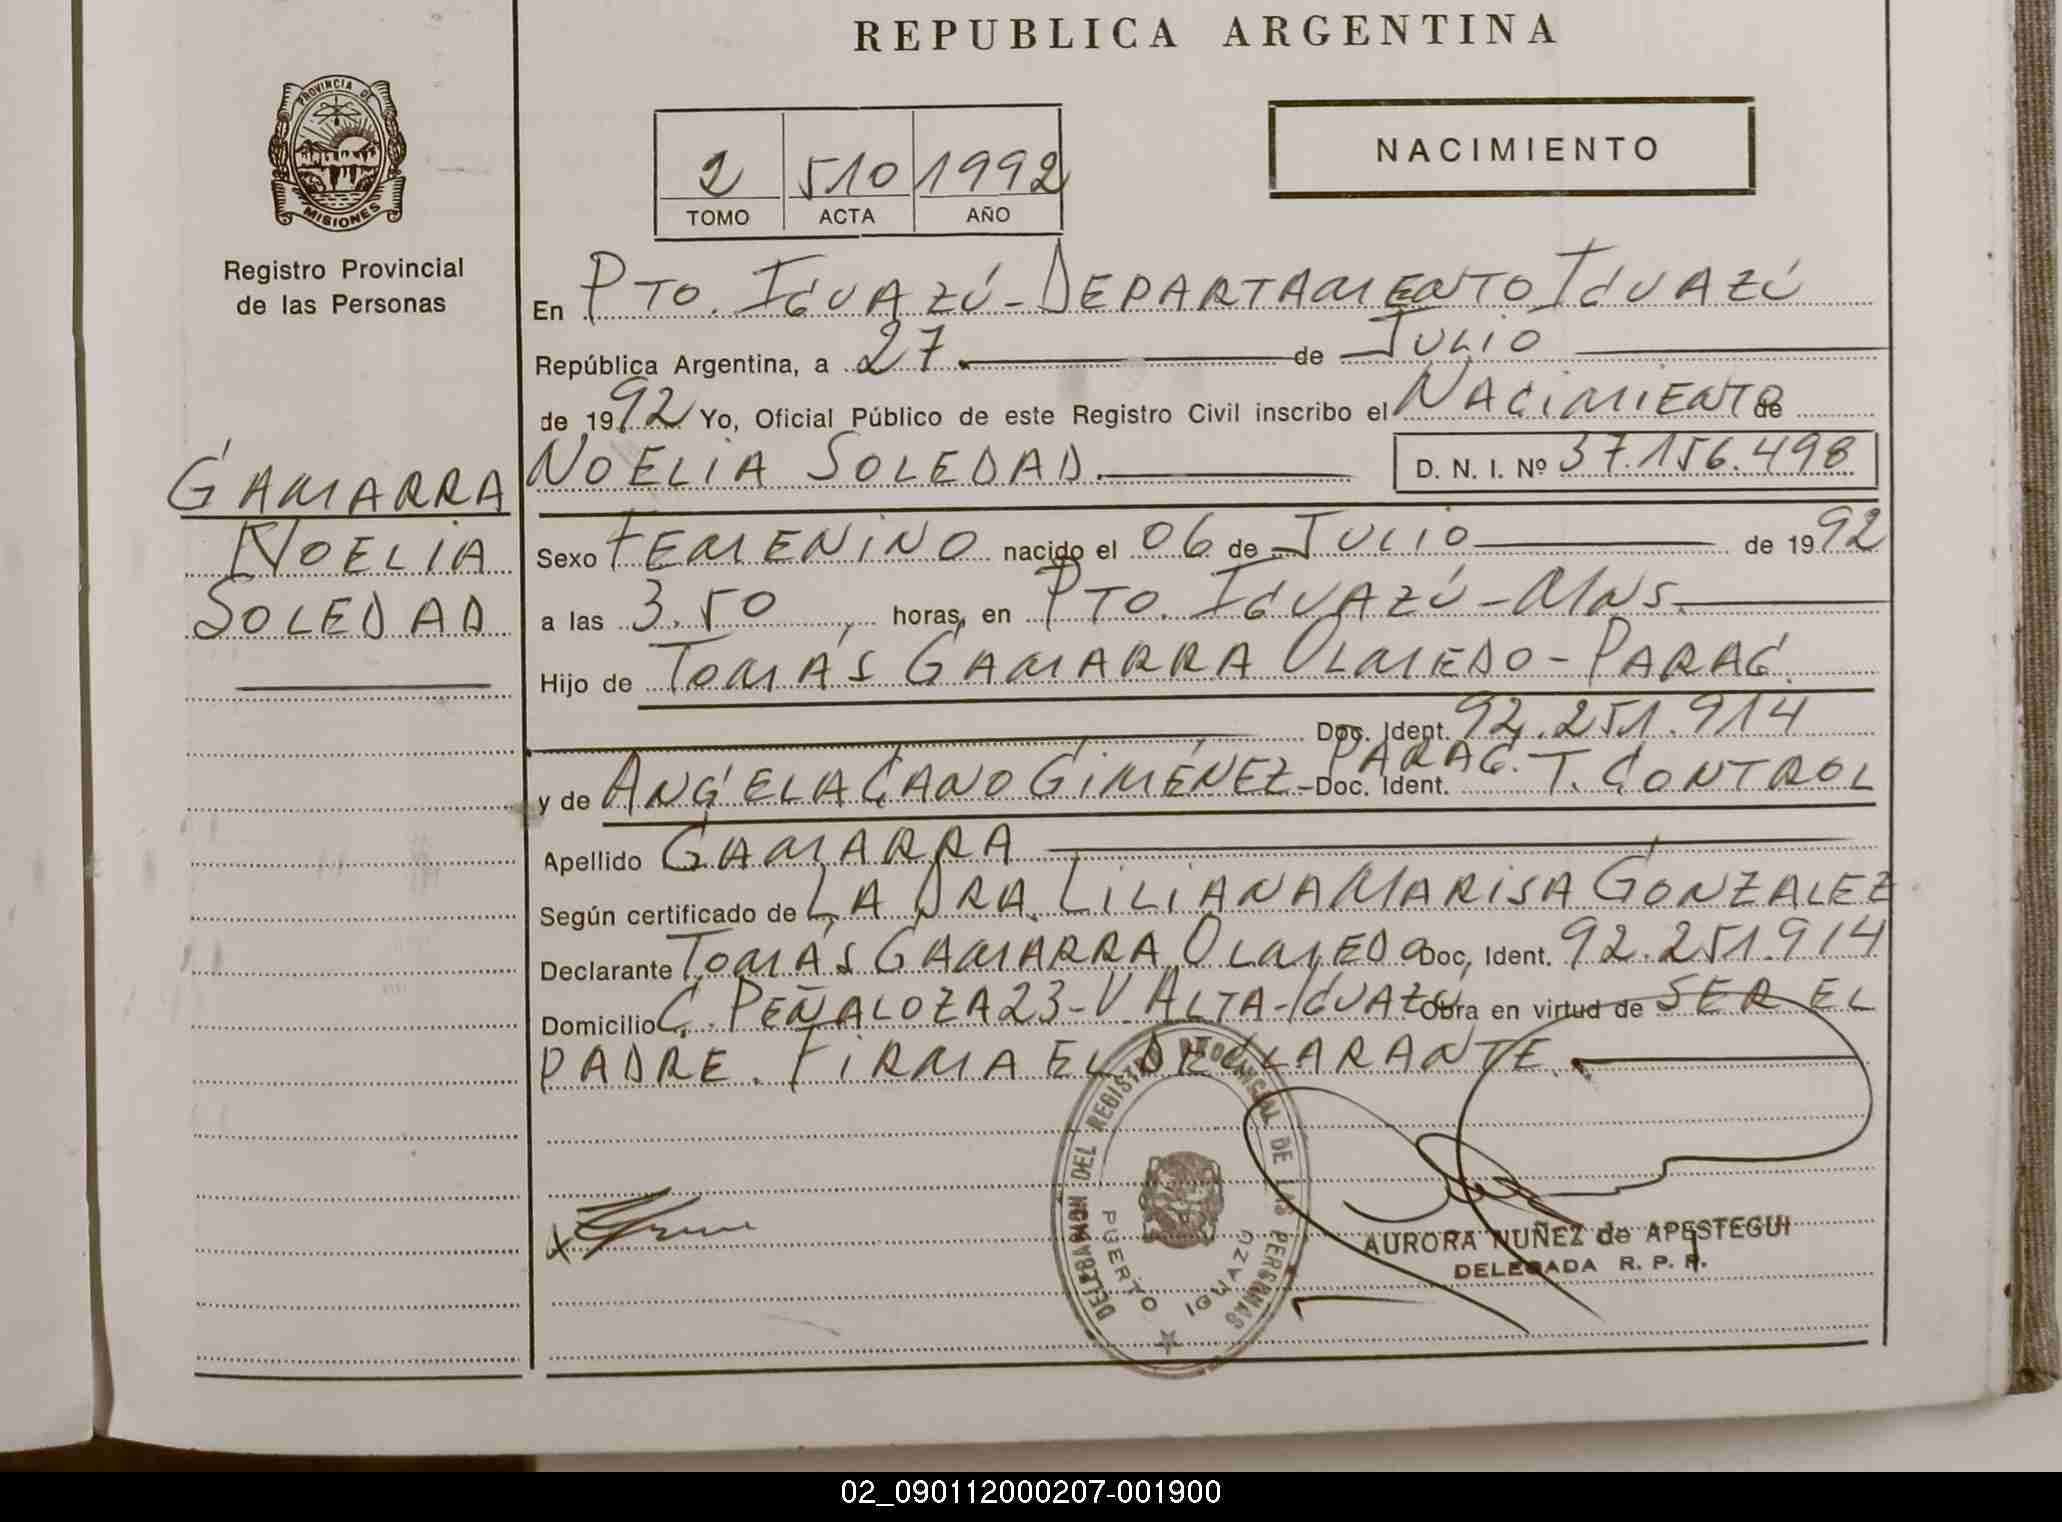 REPUBLICA ARGENTINA
PROVINCIA DE
MISIONES
Registro Provincial
de las Personas
2 510 1992
TOMO ACTA AÑO
NACIMIENTO
En PTO. IGUAZÚ - DEPARTAMENTO IGUAZÚ
República Argentina, a 27 de JULIO
de 1992 Yo, Oficial Público de este Registro Civil inscribo el NACIMIENTO de
NOELIA SOLEDAD. D. N. I. Nº 37.156.498
GAMARRA
NOELIA
SOLEDAD
Sexo FEMENINO nacido el 06 de JULIO de 1992
a las 3.50, horas, en PTO. IGUAZÚ - MNS.
Hijo de TOMÁS GAMARRA OLMEDO - PARAG.
Doc. Ident. 92.251.914
y de ANGELA CANO GIMÉNEZ - PARAG. Doc. Ident. T. CONTROL
Apellido GAMARRA
Según certificado de LA DRA. LILIANA MARISA GONZALEZ
Declarante TOMÁS GAMARRA OLMEDO Doc. Ident. 92.251.914
Domicilio C. PEÑALOZA 23 - V. ALTA - IGUAZÚ Obra en virtud de SER EL
PADRE. FIRMA EL DECLARANTE.
DELEGACION DEL REGISTRO PROVINCIAL DE LAS PERSONAS
PUERTO IGUAZU
AURORA NUÑEZ de APESTEGUI
DELEGADA R. P. P.
02_090112000207-001900